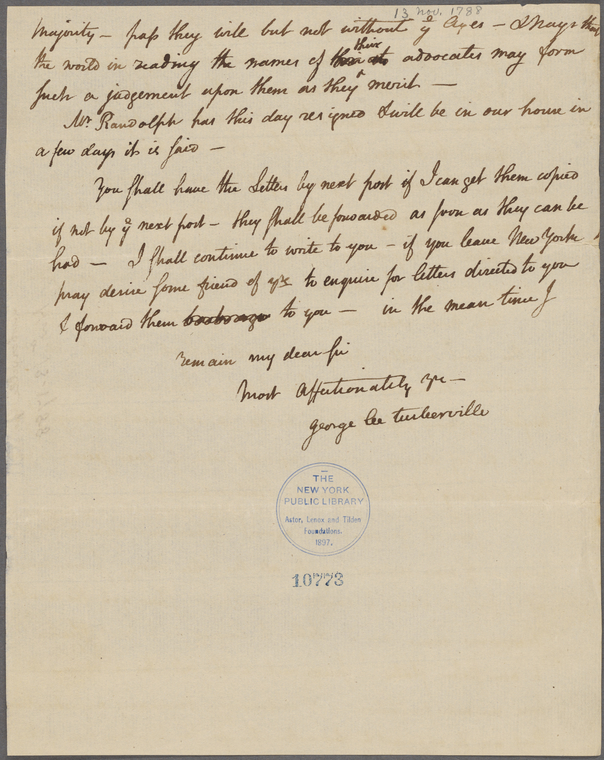 13 Nov. 1788
Majority — pass they will but not without ye Ayes — & Nays that
the world in reading the names of their advocates may form
such a judgement upon them as they merit —
Mr. Randolph has this day resigned & will be in our house in
a few days it is said —
You shall have the Letters by next post if I can get them copied
if not by ye next post — they shall be forwarded as soon as they can be
had — I shall continue to write to you — if you leave New York
pray desire some friend of yrs to enquire for letters directed to you
& forward them to you — in the mean time I
remain my dear Sir
Most Affectionately yrs —
George Lee Turberville
THE
NEW YORK
PUBLIC LIBRARY
Astor, Lenox and Tilden
Foundations.
1897.
10773